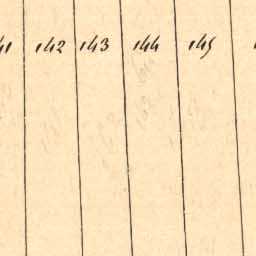 142 143 144 145